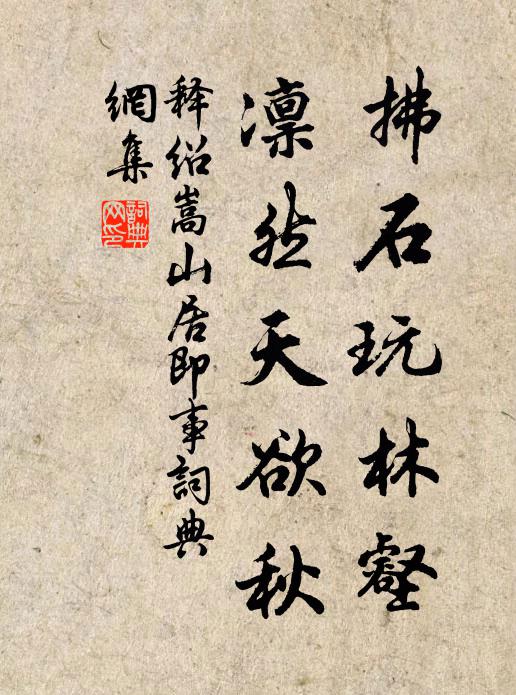 拂石玩林壑
凛然天欲秋
释绍嵩山居即事詞典
網集
詞典網印